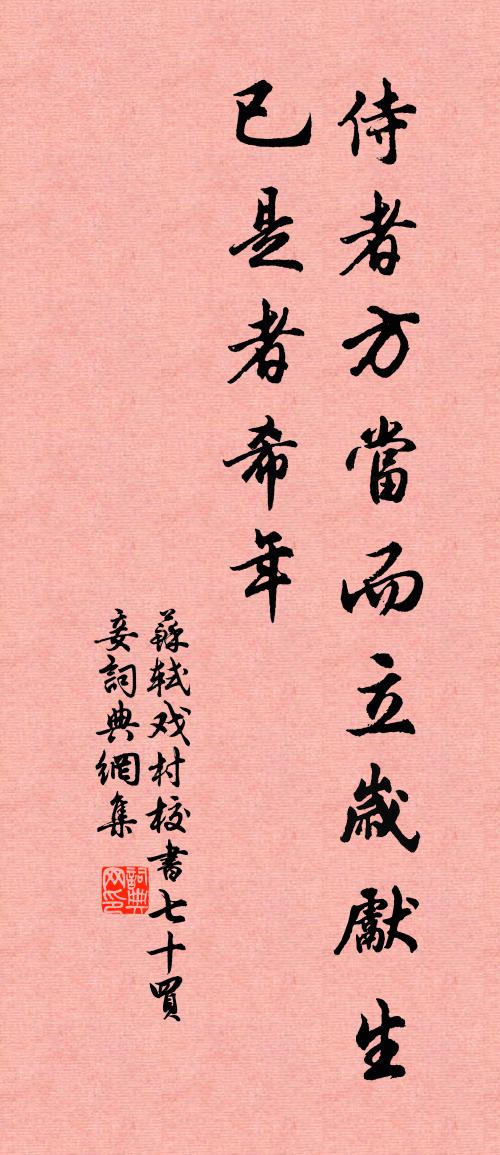 侍者方當而立歲獻生
已是者希年
蘇軾戏村校書七十買
妾詞典網集
詞典网印